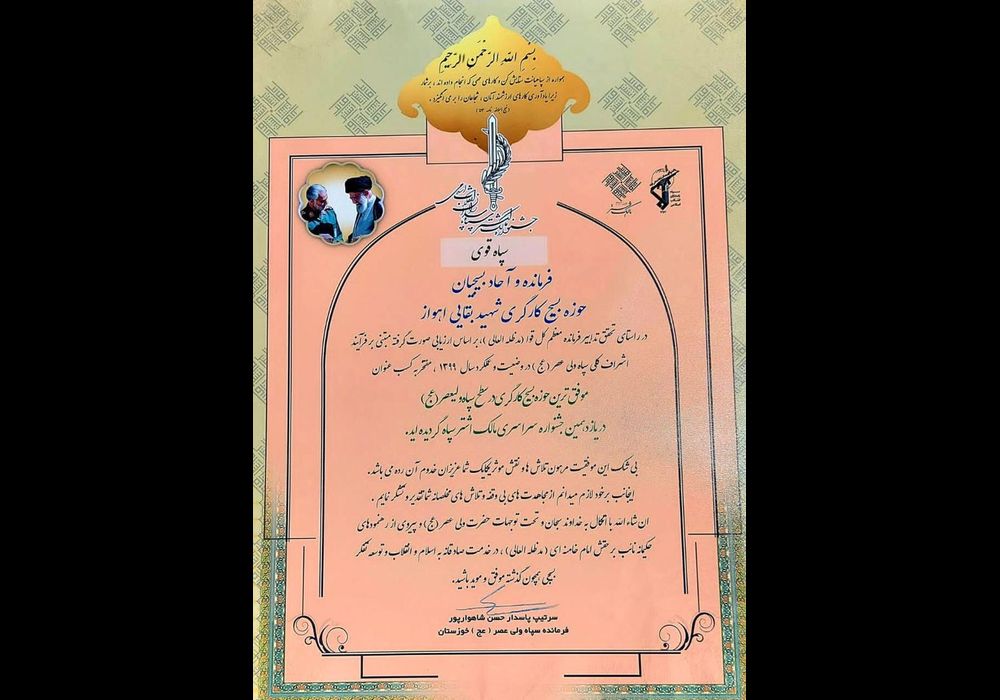 بِسْمِ اللهِ الرَّحْمَنِ الرَّحِيمِ
همواره از سپاهیانت ستایش کن و کارهای مهمی که انجام داده اند، برشمار
زیرا یادآوری کارهای ارزشمند آنان، شجاعان را بر می انگیزد.
(نهج البلاغه نامه ۵۳)
جشنواره مالک اشتر
سپاه قوی
فرمانده و آحاد بسیجیان
حوزه بسیج کارگری شهید بقایی اهواز
در راستای تحقق تدابیر فرمانده معظم کل قوا (مدظله العالی)، بر اساس ارزیابی صورت گرفته مبتنی بر فرآیند
اشراف کلی سپاه ولی عصر (عج) در وضعیت و عملکرد سال ۱۳۹۹، مفتخر به کسب عنوان
موفق ترین حوزه بسیج کارگری در سطح سپاه ولیعصر (عج)
در یازدهمین جشنواره سراسری مالک اشتر سپاه گردیده اید.
بی شک این موفقیت مرهون تلاش ها و نقش موثر یکایک شما عزیزان خدوم آن رده می باشد.
اینجانب بر خود لازم میدانم از مجاهدت های بی وقفه و تلاش های مخلصانه شما تقدیر و تشکر نمایم.
ان شاء الله با اتکال به خداوند سبحان و تحت توجهات حضرت ولی عصر (عج) و پیروی از رهنمودهای
حکیمانه نائب بر حقش امام خامنه ای (مدظله العالی)، در خدمت صادقانه به اسلام و انقلاب و توسعه تفکر
بسیجی همچون گذشته موفق و موید باشید.
سرتیپ پاسدار حسن شاهوارپور
فرمانده سپاه ولی عصر (عج) خوزستان